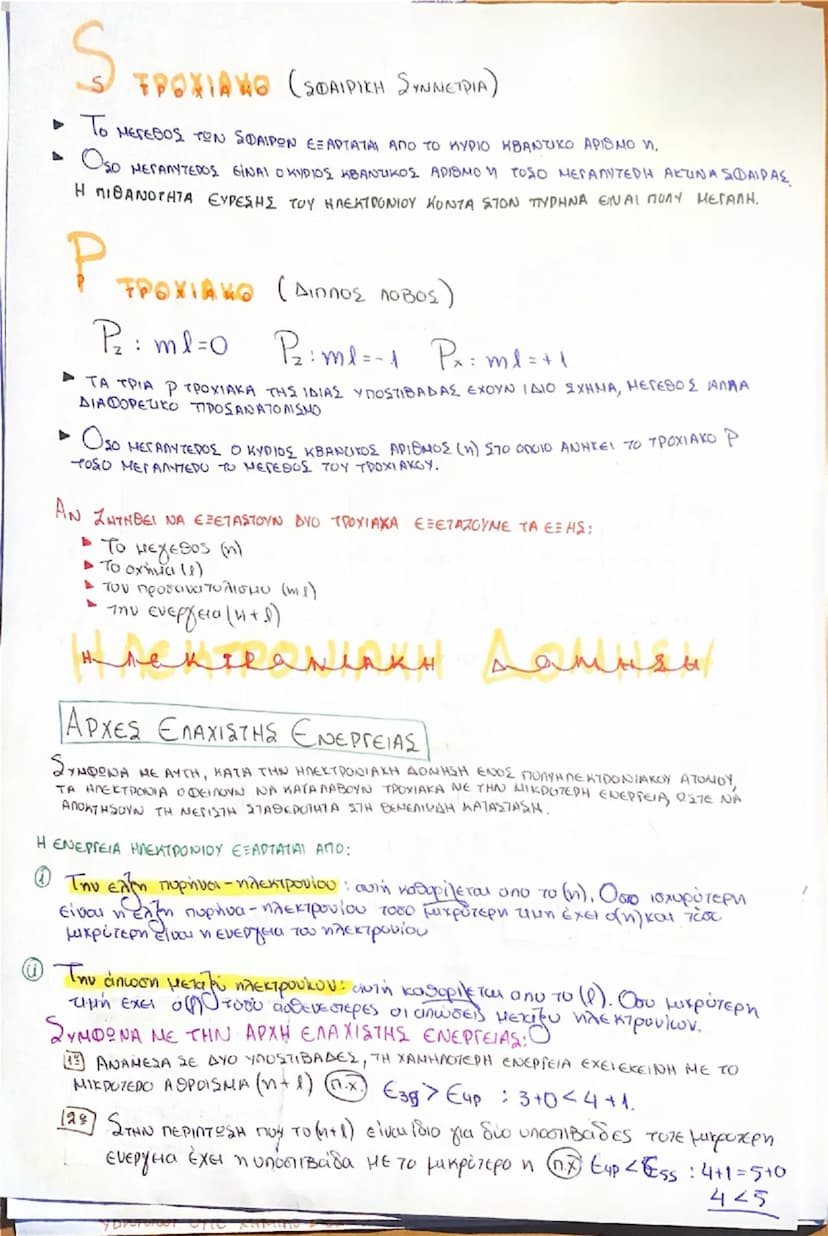 S
S ΤΡΟΧΙΑΚΟ (SΦΑΙΡΙΚΗ SΥΜΜΕΤΡΙΑ)
▶ ΤΟ ΜΕΓΕΘΟΣ ΤΩΝ SΦΑΙΡΩΝ ΕΞΑΡΤΑΤΑΙ ΑΠΟ ΤΟ ΚΥΡΙΟ ΚΒΑΝΤΙΚΟ ΑΡΙΘΜΟ n.
▶ ΟSΟ ΜΕΓΑΛΥΤΕΡΟΣ ΕΙΝΑΙ Ο ΚΥΡΙΟΣ ΚΒΑΝΤΙΚΟΣ ΑΡΙΘΜΟ n ΤΟSΟ ΜΕΓΑΛΥΤΕΡΗ ΑΚΤΙΝΑ SΦΑΙΡΑΣ.
Η ΠΙΘΑΝΟΤΗΤΑ ΕΥΡΕSΗΣ ΤΟΥ ΗΛΕΚΤΡΟΝΙΟΥ ΚΟΝΤΑ SΤΟΝ ΠΥΡΗΝΑ ΕΙΝΑΙ ΠΟΛΥ ΜΕΓΑΛΗ.
P
P ΤΡΟΧΙΑΚΟ (ΔΙΠΛΟΣ ΛΟΒΟΣ)
Pz : ml=0 Pz : ml=-1 Px : ml=+1
▶ ΤΑ ΤΡΙΑ P ΤΡΟΧΙΑΚΑ ΤΗΣ ΙΔΙΑΣ ΥΠΟSΤΙΒΑΔΑΣ ΕΧΟΥΝ ΙΔΙΟ SΧΗΜΑ, ΜΕΓΕΘΟΣ ΑΛΛΑ
ΔΙΑΦΟΡΕΤΙΚΟ ΠΡΟSΑΝΑΤΟΛΙSΜΟ
▶ ΟSΟ ΜΕΓΑΛΥΤΕΡΟΣ Ο ΚΥΡΙΟΣ ΚΒΑΝΤΙΚΟΣ ΑΡΙΘΜΟΣ (n) SΤΟ ΟΠΟΙΟ ΑΝΗΚΕΙ ΤΟ ΤΡΟΧΙΑΚΟ P
ΤΟSΟ ΜΕΓΑΛΥΤΕΡΟ ΤΟ ΜΕΓΕΘΟΣ ΤΟΥ ΤΡΟΧΙΑΚΟΥ.
ΑΝ ΖΗΤΗΘΕΙ ΝΑ ΕΞΕΤΑSΤΟΥΝ ΔΥΟ ΤΡΟΧΙΑΚΑ ΕΞΕΤΑΖΟΥΜΕ ΤΑ ΕΞΗΣ:
▶ Το μεγεθος (n)
▶ Το σχημα (l)
▶ τον προσανατολισμο (ml)
▶ την ενεργεια (n+l)
ΗΛΕΚΤΡΟΝΙΑΚΗ ΔΟΜΗSΗ
ΑΡΧΕΣ ΕΛΑΧΙSΤΗΣ ΕΝΕΡΓΕΙΑΣ
SΥΜΦΩΝΑ ΜΕ ΑΥΤΗ, ΚΑΤΑ ΤΗΝ ΗΛΕΚΤΡΟΝΙΑΚΗ ΔΟΜΗSΗ ΕΝΟΣ ΠΟΛΥΗΛΕΚΤΡΟΝΙΑΚΟΥ ΑΤΟΜΟΥ,
ΤΑ ΗΛΕΚΤΡΟΝΙΑ ΟΦΕΙΛΟΥΝ ΝΑ ΚΑΤΑΛΑΒΟΥΝ ΤΡΟΧΙΑΚΑ ΜΕ ΤΗΝ ΜΙΚΡΟΤΕΡΗ ΕΝΕΡΓΕΙΑ, ΩSΤΕ ΝΑ
ΑΠΟΚΤΗSΟΥΝ ΤΗ ΜΕΓΙSΤΗ SΤΑΘΕΡΟΤΗΤΑ SΤΗ ΘΕΜΕΛΙΩΔΗ ΚΑΤΑSΤΑSΗ.
Η ΕΝΕΡΓΕΙΑ ΗΛΕΚΤΡΟΝΙΟΥ ΕΞΑΡΤΑΤΑΙ ΑΠΟ:
i Την ελξη πυρήνα-ηλεκτρονίου : αυτή καθορίζεται απο το (n). Οσο ισχυρότερη
είναι η ελξη πυρήνα-ηλεκτρονίου τοσο μικρότερη τιμη έχει ο(n) και τόσο
μικρότερη είναι η ενεργεια του ηλεκτρονίου
ii Την άπωση μεταξύ ηλεκτρονίων: αυτή καθορίζεται απο το (l). Οσο μικρότερη
τιμή εχει ο(l) τόσο ασθενεστερες οι απώσεις μεταξυ ηλεκτρονίων.
SΥΜΦΩΝΑ ΜΕ ΤΗΝ ΑΡΧΗ ΕΛΑΧΙSΤΗΣ ΕΝΕΡΓΕΙΑΣ:
1ο ΑΝΑΜΕSΑ SΕ ΔΥΟ ΥΠΟSΤΙΒΑΔΕΣ, ΤΗ ΧΑΜΗΛΟΤΕΡΗ ΕΝΕΡΓΕΙΑ ΕΧΕΙ ΕΚΕΙΝΗ ΜΕ ΤΟ
ΜΙΚΡΟΤΕΡΟ ΑΘΡΟΙSΜΑ (n+l) π.χ. E3s > E4p : 3+0<4+1.
2ο SΤΗΝ ΠΕΡΙΠΤΩSΗ ΠΟΥ ΤΟ (n+l) είναι ίδιο για δύο υποστιβάδες τοτε μικροτερη
ενεργεια έχει η υποστιβάδα ΜΕ ΤΟ μικρότερο n π.χ E4p < E5s : 4+1=5+0
4<5